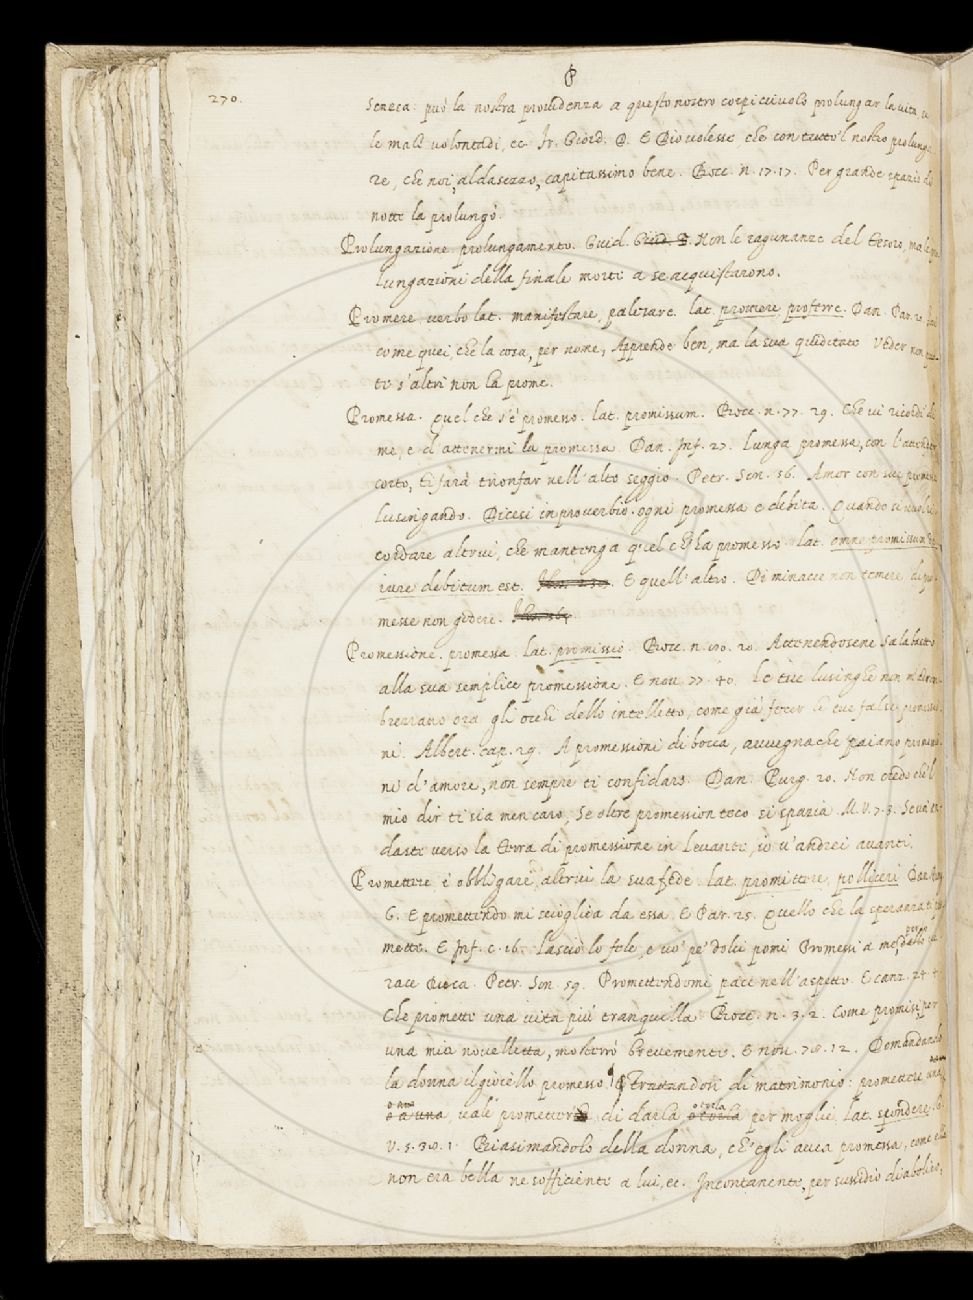 P
270.
Seneca: può la nostra providenza a questo nostro corpicciuolo prolungar la vita
le mali volontadi, ec. Fr. Giord. D. E Dio volesse, che con tutto'l nostro prolunga
re, che noi, aldasezzo, capitassimo bene. Bocc. n. 17. 17. Per grande spazio
notte la prolungò.
Prolungazione. prolungamento. Guid. Guid. G. Non le ragunanze del tesoro, ma le pro
lungazioni della finale morti a se acquistarono.
Promere. verbo lat. manifestare, palesare. lat. promere, proferre. Dan. Par. 20. Fai
come quei, che la cosa, per nome, Apprende ben, ma la sua quiditate Veder non
te s'altri non la prome.
Promessa. Quel che s'è promesso. lat. promissum. Bocc. n. 77. 29. Che vi ricordi di
me, e d'attenermi la promessa. Dan. Inf. 27. Lunga promessa, con l'attender
corto, ti farà trionfar nell'alto seggio. Petr. Son. 56. Amor con sue promesse
lusingando. Dicesi in proverbio. ogni promessa è debito. Quando si vuol ri
cordare altrui, che mantenga quel ch'ha promesso. lat. omne promissum de
iure debitum est. E quell'altro. Di minacce non temere, di pro
messe non godere.
Promessione. promessa. lat. promissio. Bocc. n. 80. 20. Attenendosene Salabaetto
alla sua semplice promessione. E nov. 77. 40. Le tue lusinghe non m'adom
breranno ora gli occhi dello intelletto, come già fecer le tue false promessio
ni. Albert. cap. 29. A promessioni di bocca, avvegnache paiano promessio
ni d'amore, non sempre ti confidars. Dan. Purg. 20. Non credo che'l
mio dir ti sia men caro, Se oltre promession teco si spazia. M. V. 7. 3. Se va an
daste verso la terra di promessione in levante, io v'andrei avanti.
Promettere. è obbligare, altrui la sua fede. lat. promittere, polliceri. Dan. Purg
6. E promettendo mi sciogliea da essa. E Par. 25. Quello che la speranza ti pro
mette. E Inf. c. 16. Lascio lo fele, e vo' pe' dolci pomi Promessi a me, dallo
race duca. Petr. Son. 59. Promettendomi pace nell'aspetto. E canz. 24. 4
Che promette una vita più tranquilla. Bocc. n. 3. 2. Come promisi per
una mia novelletta, mostrerò brevemente. E nov. 78. 12. Domandando
la donna il gioiello promesso. Trattandosi di matrimonio: promettere una
o a uno vale promettere di darla o torla per moglie. lat. spondere. G.
V. 5. 38. 1. Biasimandolo della donna, ch'egli avea promessa, come ella
non era bella ne sofficiente a lui, ec. Incontanente, per sussidio diabolico,